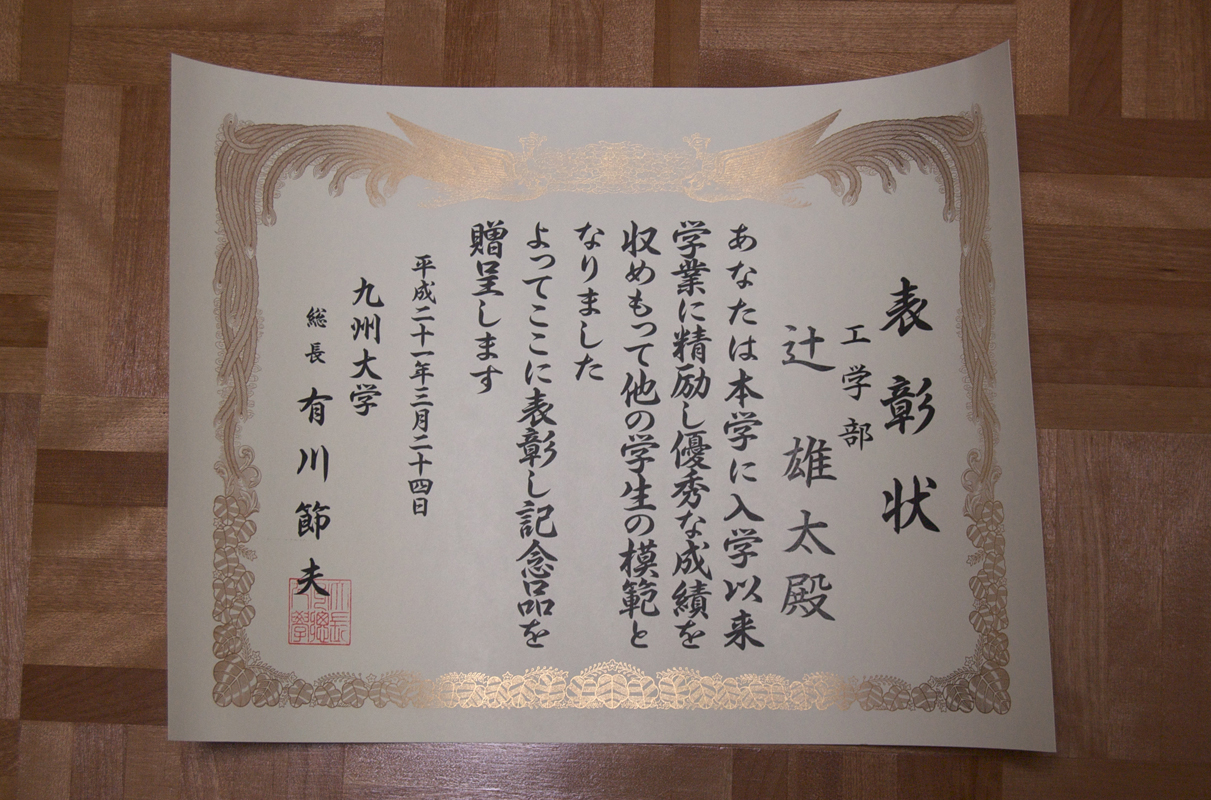 表彰状
工学部
辻雄太殿
あなたは本学に入学以来
学業に精励し優秀な成績を
収めもって他の学生の模範と
なりました
よってここに表彰し記念品を
贈呈します
平成二十一年三月二十四日
九州大学
総長 有川節夫